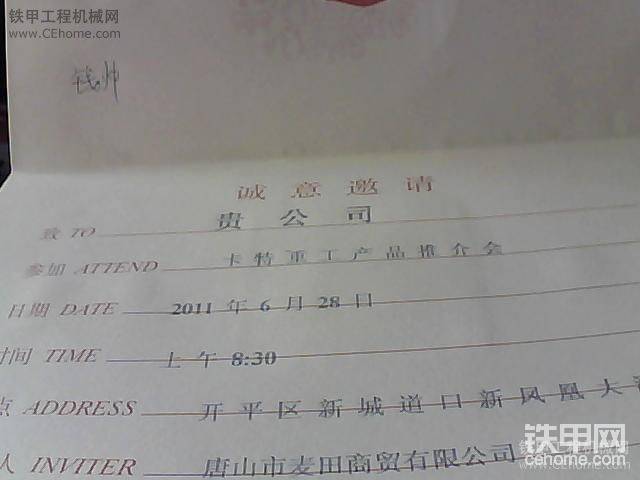 铁甲工程机械网
www.CEhome.com
诚意邀请
致 TO 贵公司
参加 ATTEND 卡特重工产品推介会
日期 DATE 2011 年 6 月 28 日
时间 TIME 上午 8:30
点 ADDRESS 开平区新城道口新凤凰大
人 INVITER 唐山市麦田商贸有限公司
铁甲网
cehome.com